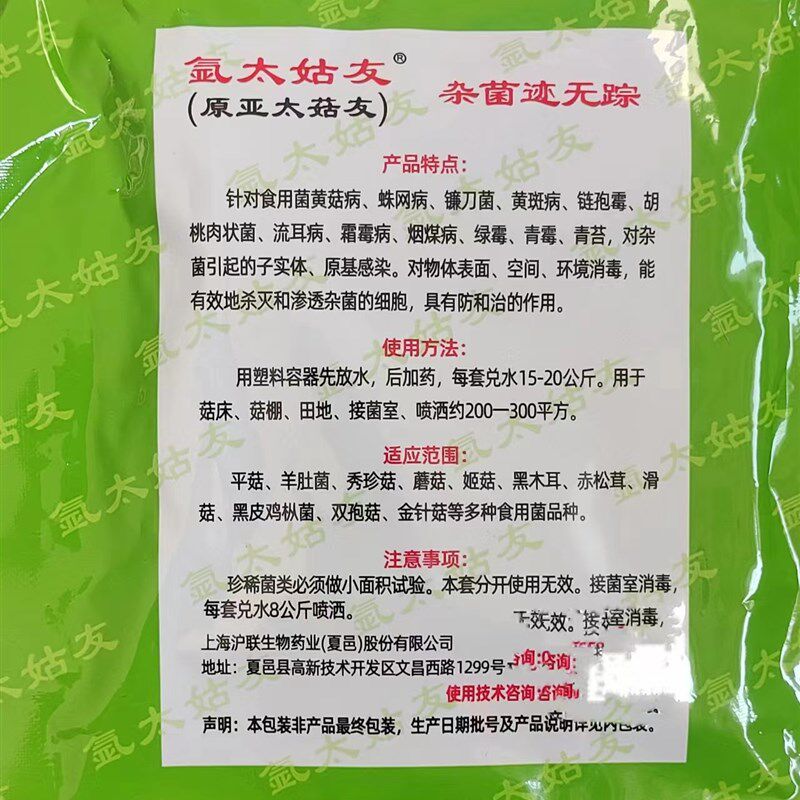 氩太姑友®
(原亚太菇友)
杂菌迹无踪
产品特点：
针对食用菌黄菇病、蛛网病、镰刀菌、黄斑病、链孢霉、胡
桃肉状菌、流耳病、霜霉病、烟煤病、绿霉、青霉、青苔，对杂
菌引起的子实体、原基感染。对物体表面、空间、环境消毒，能
有效地杀灭和渗透杂菌的细胞，具有防和治的作用。
使用方法：
用塑料容器先放水，后加药，每套兑水15-20公斤。用于
菇床、菇棚、田地、接菌室、喷洒约200一300平方。
适应范围：
平菇、羊肚菌、秀珍菇、蘑菇、姬菇、黑木耳、赤松茸、滑
菇、黑皮鸡枞菌、双孢菇、金针菇等多种食用菌品种。
注意事项：
珍稀菌类必须做小面积试验。本套分开使用无效。接菌室消毒，
每套兑水8公斤喷洒。
无效。接
室消毒，
上海沪联生物药业(夏邑)股份有限公司
地址：夏邑县高新技术开发区文昌西路1299号
咨询：
使用技术咨询
声明：本包装非产品最终包装，生产日期批号及产品说明详见内包装。